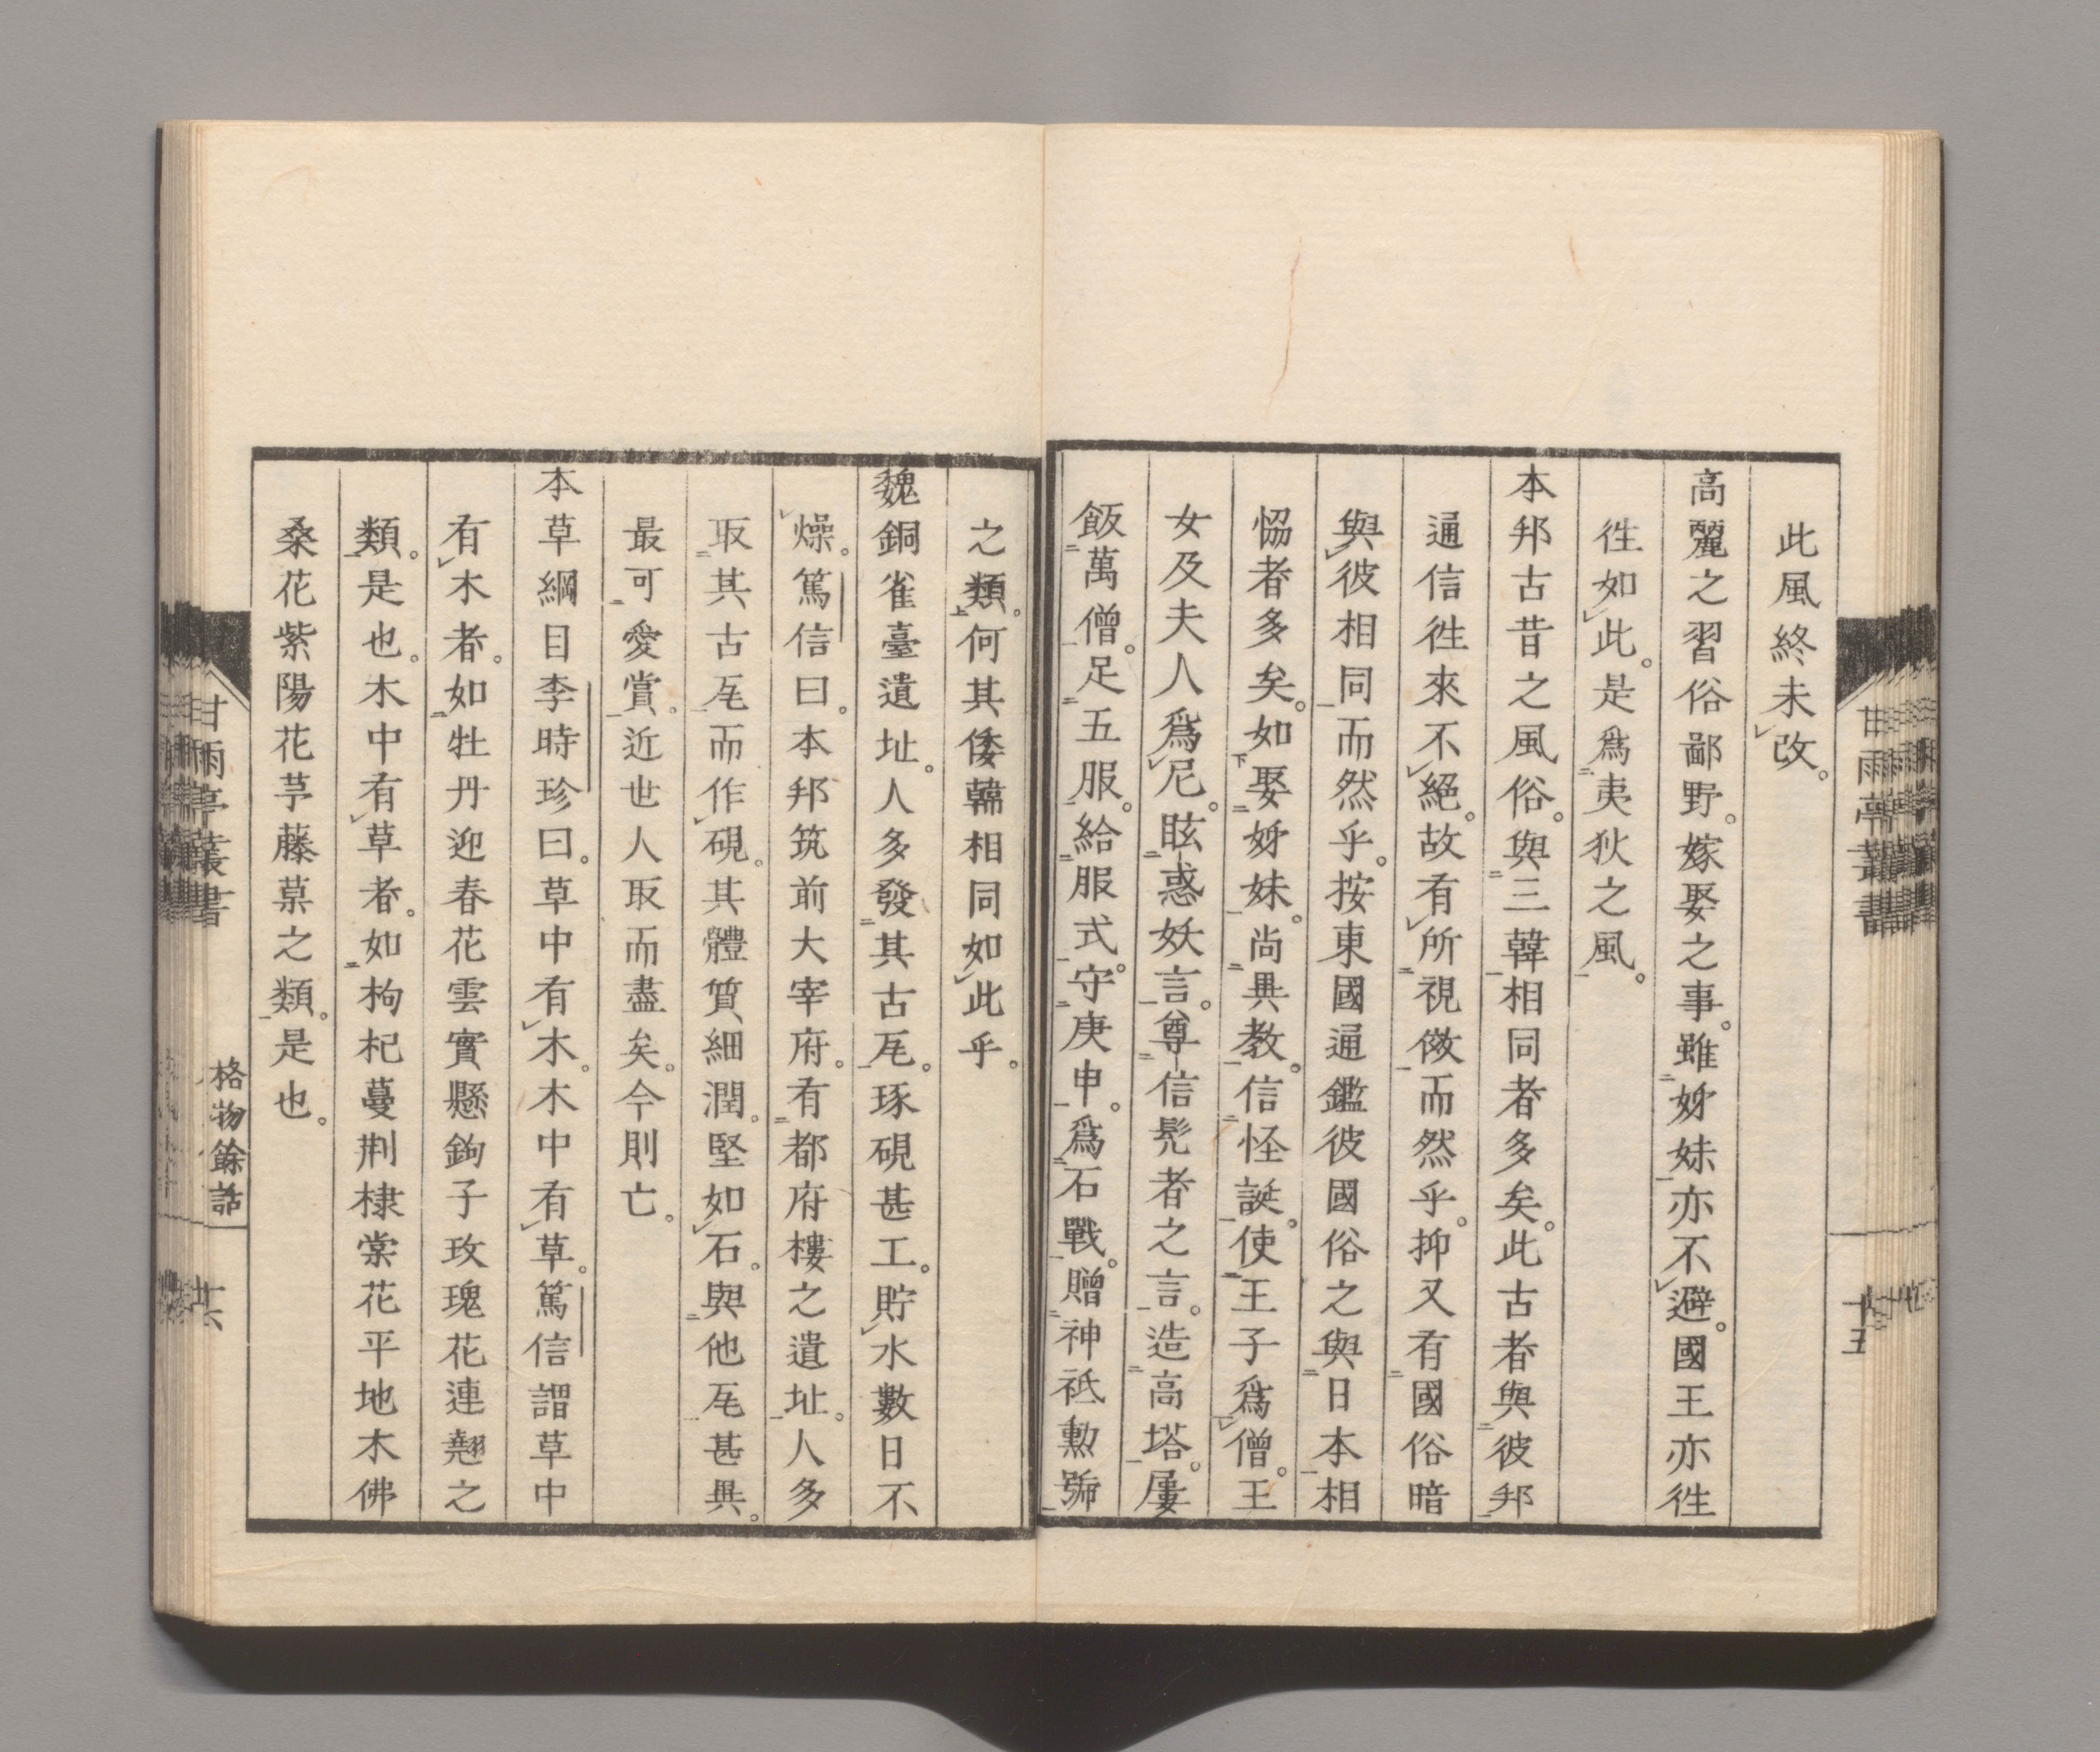 此風終未改。
高麗之習俗鄙野。嫁娶之事。雖姊妹亦不避。國王亦徃
徃如此。是爲夷狄之風。
本邦古昔之風俗。與三韓相同者多矣。此古者與彼邦
通信徃來不絕。故有所視傚而然乎。抑又有國俗暗
與彼相同而然乎。按東國通鑑彼國俗之與日本相
恊者多矣。如娶姊妹。尚異教。信怪誕。使王子爲僧。王
女及夫人爲尼。眩惑妖言。尊信髡者之言。造高塔。屢
飯萬僧。足五服。給服式。守庚申。爲石戰。贈神祇勳號
之類。何其倭韓相同如此乎。
魏銅雀臺遺址。人多發其古瓦。琢硯甚工。貯水數日不
燥。篤信曰。本邦筑前大宰府。有都府樓之遺址。人多
取其古瓦而作硯。其體質細潤。堅如石。與他瓦甚異。
最可愛賞。近世人取而盡矣。今則亡。
本草綱目李時珍曰。草中有木。木中有草。篤信謂草中
有木者。如牡丹迎春花雲實懸鉤子玫瑰花連翹之
類。是也。木中有草者。如枸杞蔓荆棣棠花平地木佛
桑花紫陽花芋藤菓之類。是也。
甘雨亭叢書
十五
甘雨亭叢書
格物餘話
十六